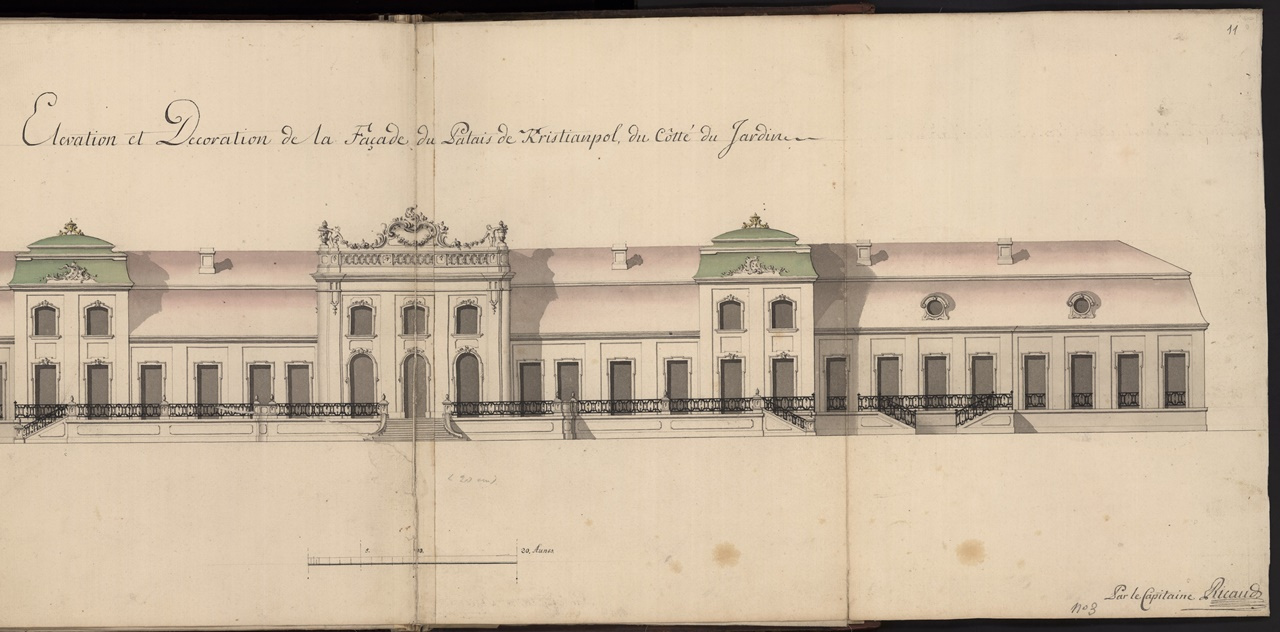 11
Elevation et Decoration de la Façade du Palais de Kristianpol, du Côtté du Jardin
5. 10. 20. Aunes
Par le Capitaine Ricaud
No 3